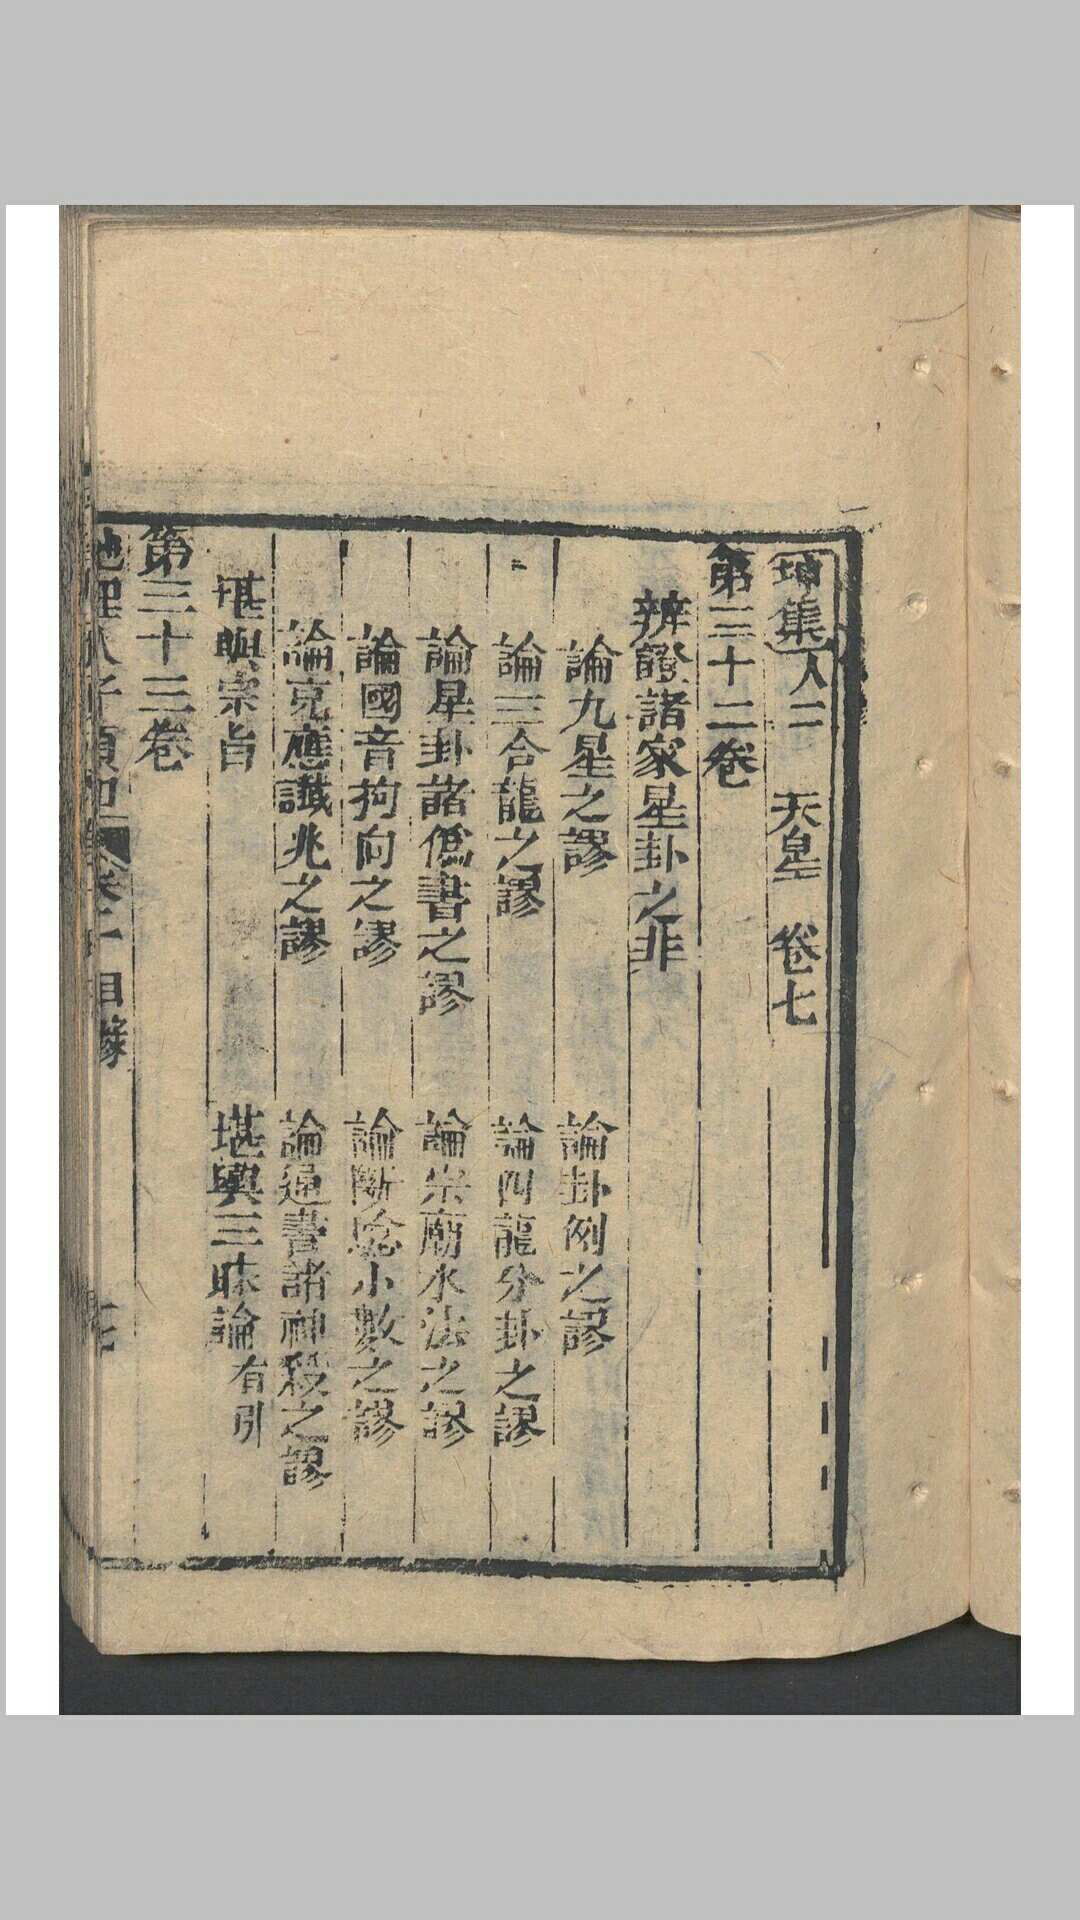 坤集人二 天皇 卷七
第三十二卷
辨證諸家星卦之非
論九星之謬 論卦例之謬
論三合龍之謬 論四龍分卦之謬
論星卦諸僞書之謬 論宗廟水法之謬
論國音拘向之謬 論斷驗小數之謬
論克應讖兆之謬 論通書諸神殺之謬
堪輿宗旨 堪輿三昧論有引
第三十三卷
地理人子須知 卷 目錄